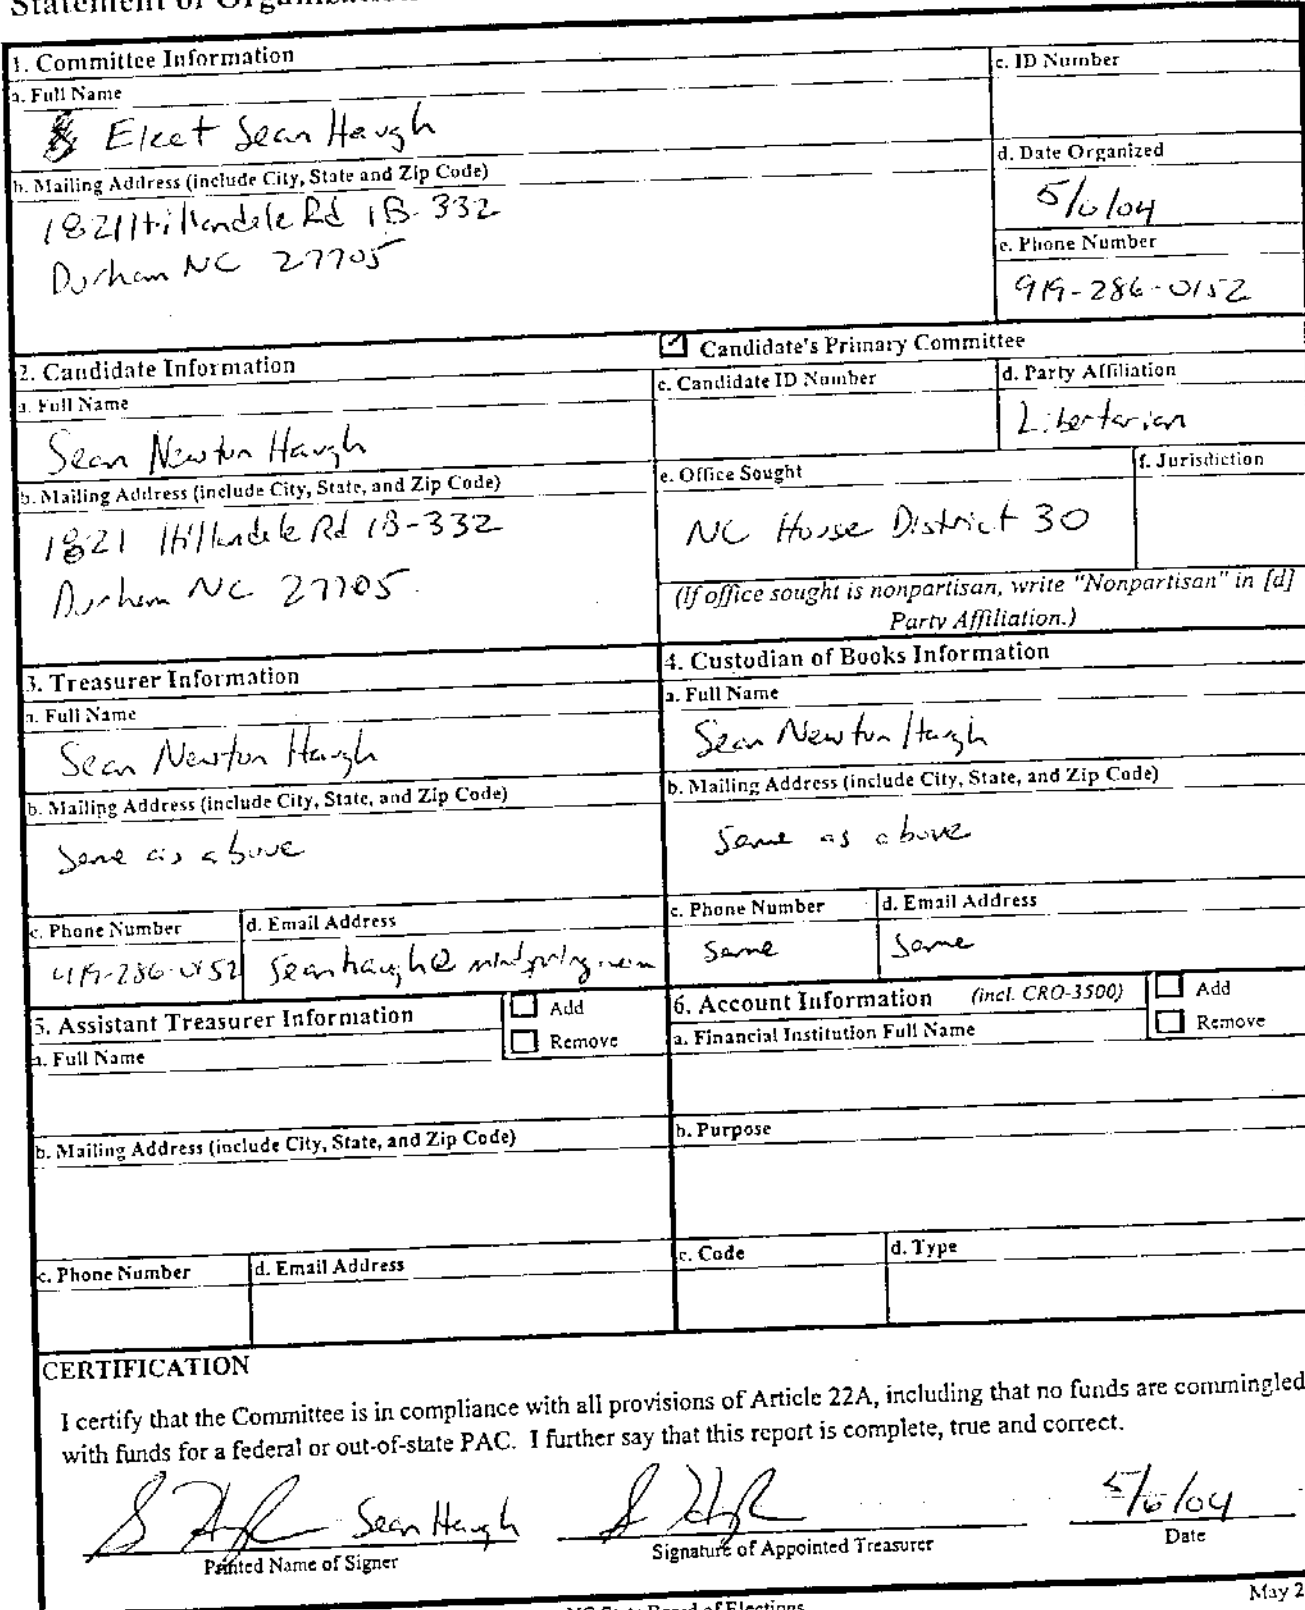 Statement of Organization
1. Committee Information
a. Full Name
Elect Sean Haugh
c. ID Number
b. Mailing Address (include City, State and Zip Code)
1821 Hillandale Rd 1B-332
Durham NC 27705
d. Date Organized
5/6/04
e. Phone Number
919-286-0152
2. Candidate Information
Candidate's Primary Committee
a. Full Name
Sean Newton Haugh
c. Candidate ID Number
d. Party Affiliation
Libertarian
b. Mailing Address (include City, State, and Zip Code)
1821 Hillandale Rd 1B-332
Durham NC 27705
e. Office Sought
NC House District 30
f. Jurisdiction
(If office sought is nonpartisan, write "Nonpartisan" in [d]
Party Affiliation.)
3. Treasurer Information
a. Full Name
Sean Newton Haugh
b. Mailing Address (include City, State, and Zip Code)
Same as above
c. Phone Number
919-286-0152
d. Email Address
seanhaugh@mindspring.com
4. Custodian of Books Information
a. Full Name
Sean Newton Haugh
b. Mailing Address (include City, State, and Zip Code)
Same as above
c. Phone Number
Same
d. Email Address
Same
5. Assistant Treasurer Information
Add
Remove
a. Full Name
b. Mailing Address (include City, State, and Zip Code)
c. Phone Number
d. Email Address
6. Account Information (incl. CRO-3500)
Add
Remove
a. Financial Institution Full Name
b. Purpose
c. Code
d. Type
CERTIFICATION
I certify that the Committee is in compliance with all provisions of Article 22A, including that no funds are commingled
with funds for a federal or out-of-state PAC. I further say that this report is complete, true and correct.
Sean Haugh
5/6/04
Printed Name of Signer
Signature of Appointed Treasurer
Date
NC State Board of Elections
May 2